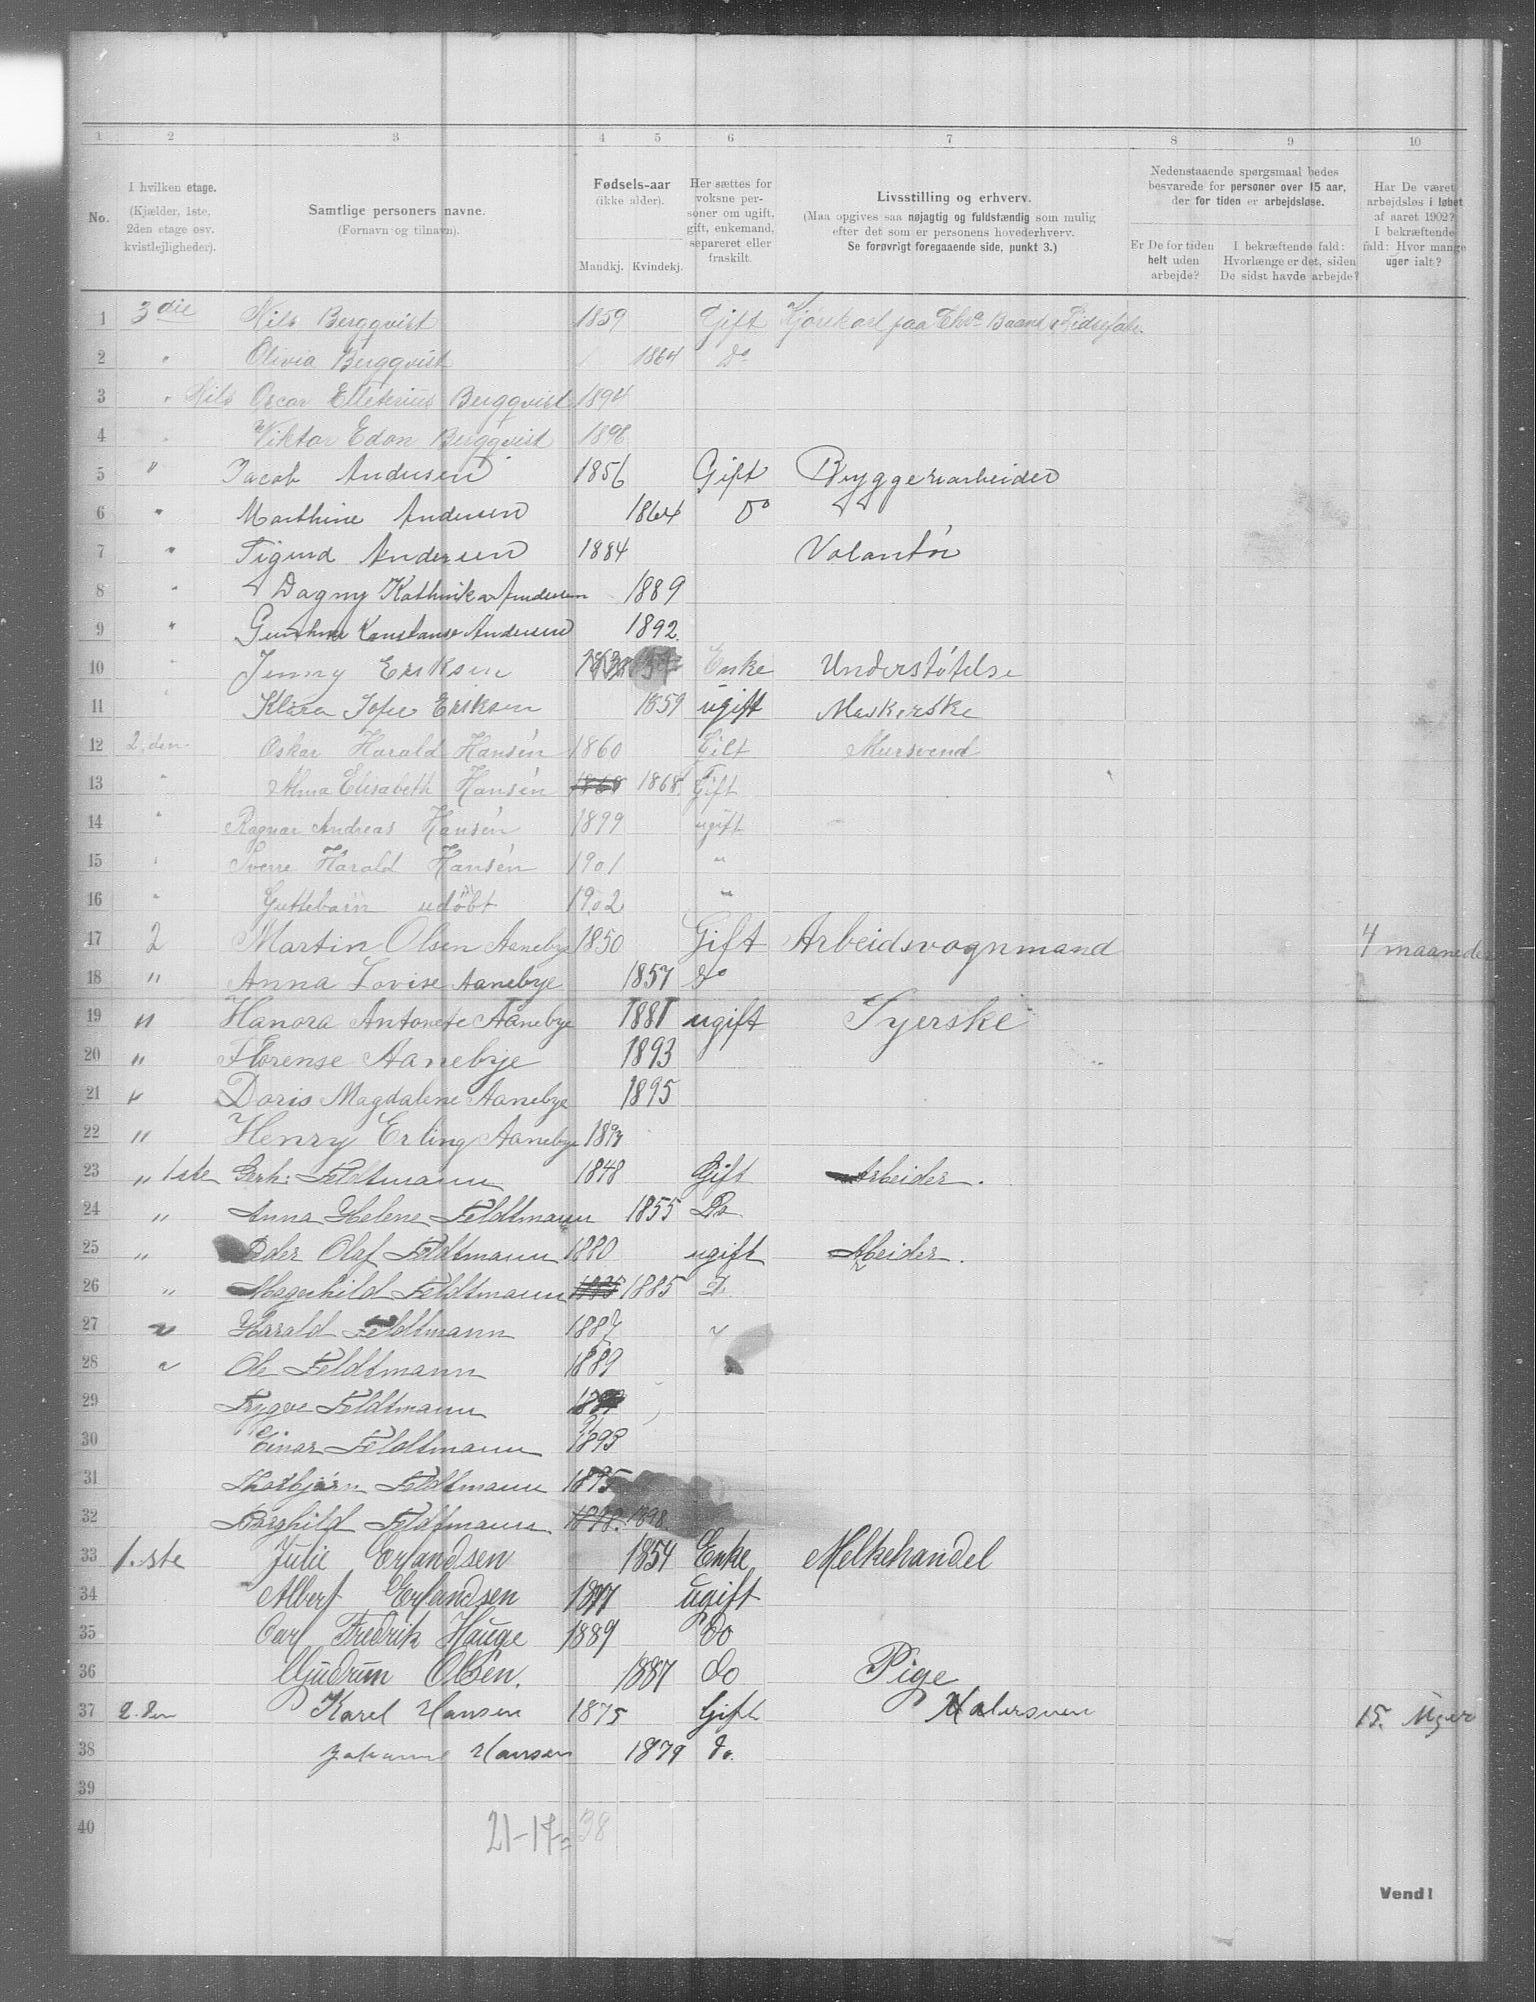 1 2 3 4 5 6 7 8 9 10
No.
I hvilken etage.
(Kjælder, 1ste,
2den etage osv.
kvistlejligheder).
Samtlige personers navne.
(Fornavn og tilnavn).
Fødsels-aar
(ikke alder).
Mandkj. Kvindekj.
Her sættes for
voksne per-
soner om ugift,
gift, enkemand,
separeret eller
fraskilt.
Livsstilling og erhverv.
(Maa opgives saa nøjagtig og fuldstændig som mulig
efter det som er personens hovederhverv.
Se forøvrigt foregaaende side, punkt 3.)
Nedenstaaende spørgsmaal bedes
besvarede for personer over 15 aar,
der for tiden er arbejdsløse.
Er De for tiden
helt uden
arbejde?
I bekræftende fald:
Hvorlænge er det, siden
De sidst havde arbejde?
Har De været
arbejdsløs i løbet
af aaret 1902?
I bekræftende
fald: Hvor mange
uger ialt?
1 3die Nils Bergqvist 1859 Gift Kjørekarl paa
2 " Olivia Bergqvist 1864 Do
3 " Nils Oscar Bergqvist 1894
4 " Viktor Edon Bergqvist 1898
5 " Jacob Andersen 1856 Gift Bryggeriarbeider
6 " Marthine Andersen 1864 Do
7 " Sigurd Andersen 1884 Volantør
8 " Dagny Kathinka Andersen 1889
9 " Konstanse Andersen 1892.
10 " Jenny Eriksen Enke Understøtelse
11 " Klara Sofie Eriksen 1859 ugift
12 2.den Oskar Harald Hansén 1860 Gift Mursvend
13 " Alma Elisabeth Hansén 1868 1868. Gift
14 " Ragnar Andreas Hansén 1899 ugift
15 " Sverre Harald Hansén 1901 "
16 " Guttebarn udøbt 1902 "
17 2 Martin Olsen Aanebye 1850 Gift Arbeidsvognmand 4 maaneder
18 " Anna Lovise Aanebye 1857 Do
19 " Hanora Antonete Aanebye 1881 ugift Syerske
20 " Florense Aanebye 1893
21 " Doris Magdalene Aanebye 1895
22 " Henry Erling Aanebye
23 " 1ste Gerh: Feldtmann 1848 Gift Arbeider.
24 " Anna Helene Feldtmann 1855 Do
25 " Peder Olaf Feldtmann 1880 ugift Arbeider.
26 " Magnhild Feldtmann 1885 1885 D.
27 " Harald Feldtmann 1887 "
28 " Ole Feldtmann 1889
29 Trygve Feldtmann
30 Einar Feldtmann 1893
31 Thorbjørn Feldtmann 1895
32 Borghild Feldtmann 1898. 1898
33 1.ste Julie Erlandsen 1854 Enke Melkehandel
34 Albert Erlandsen 1877 ugift
35 Carl Fredrik Hauge 1889 do
36 Gudrun Olsen. 1887 do Pige
37 2.den Karel Hansen 1875 Gift Malersven 15. Uger
38 Johanne Hansen 1879 do.
39
40
21-17=38
Vend!